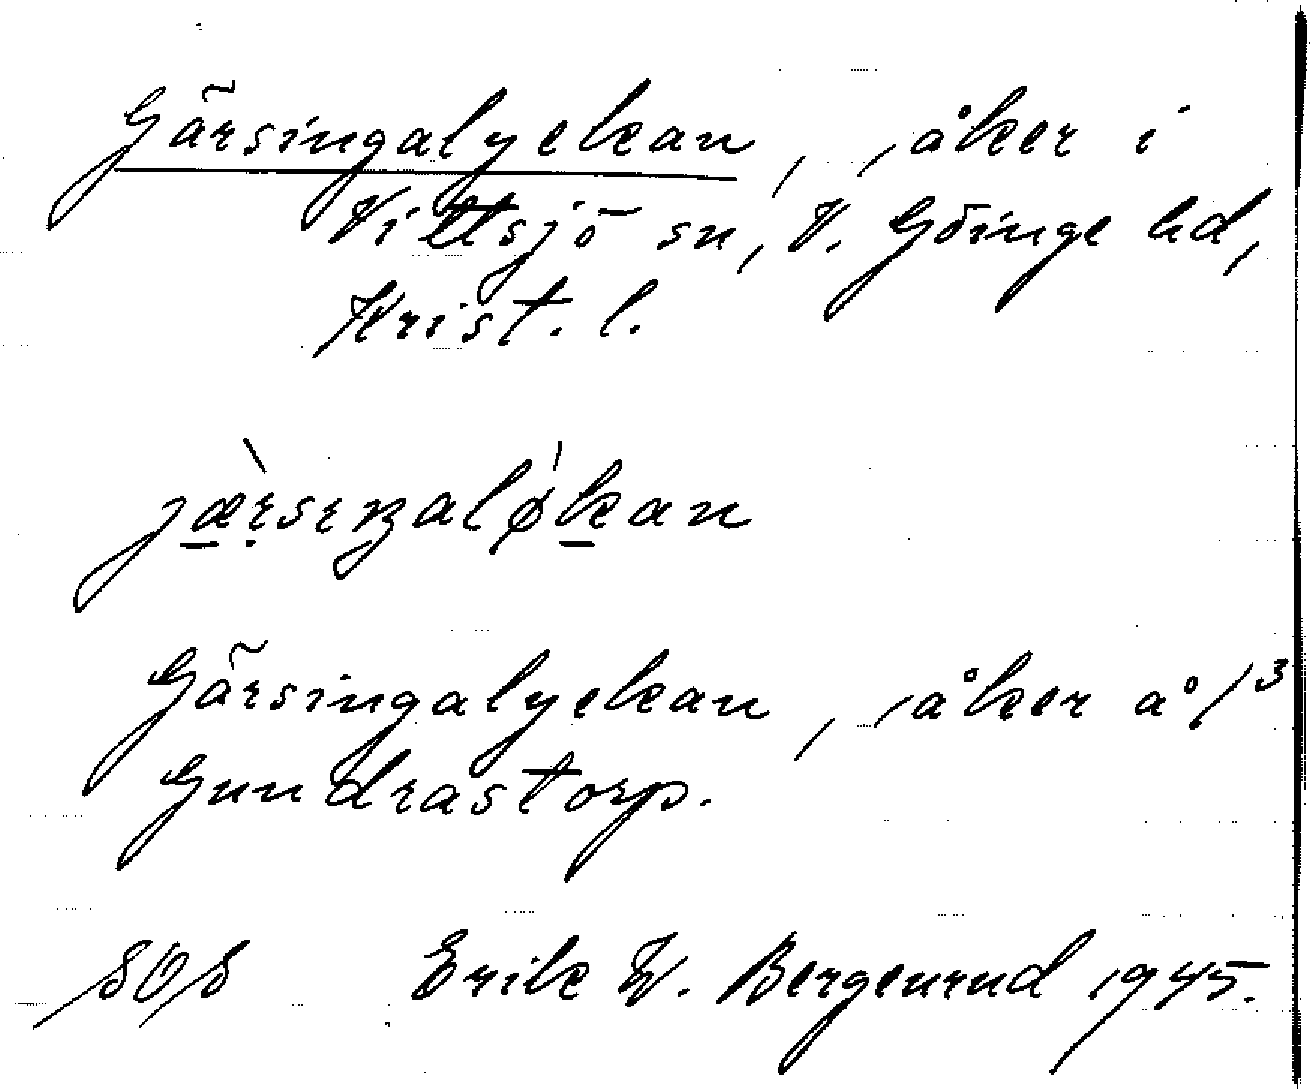 Gärsingalyckan, åker i
Vittsjö sn, V. Göinge hd,
Krist. l.
jæ̀rsɪŋaløkan
Gärsingalyckan, åker å 1/3
Gundrastorp.
SOS Erik W. Bergenrud 1945.